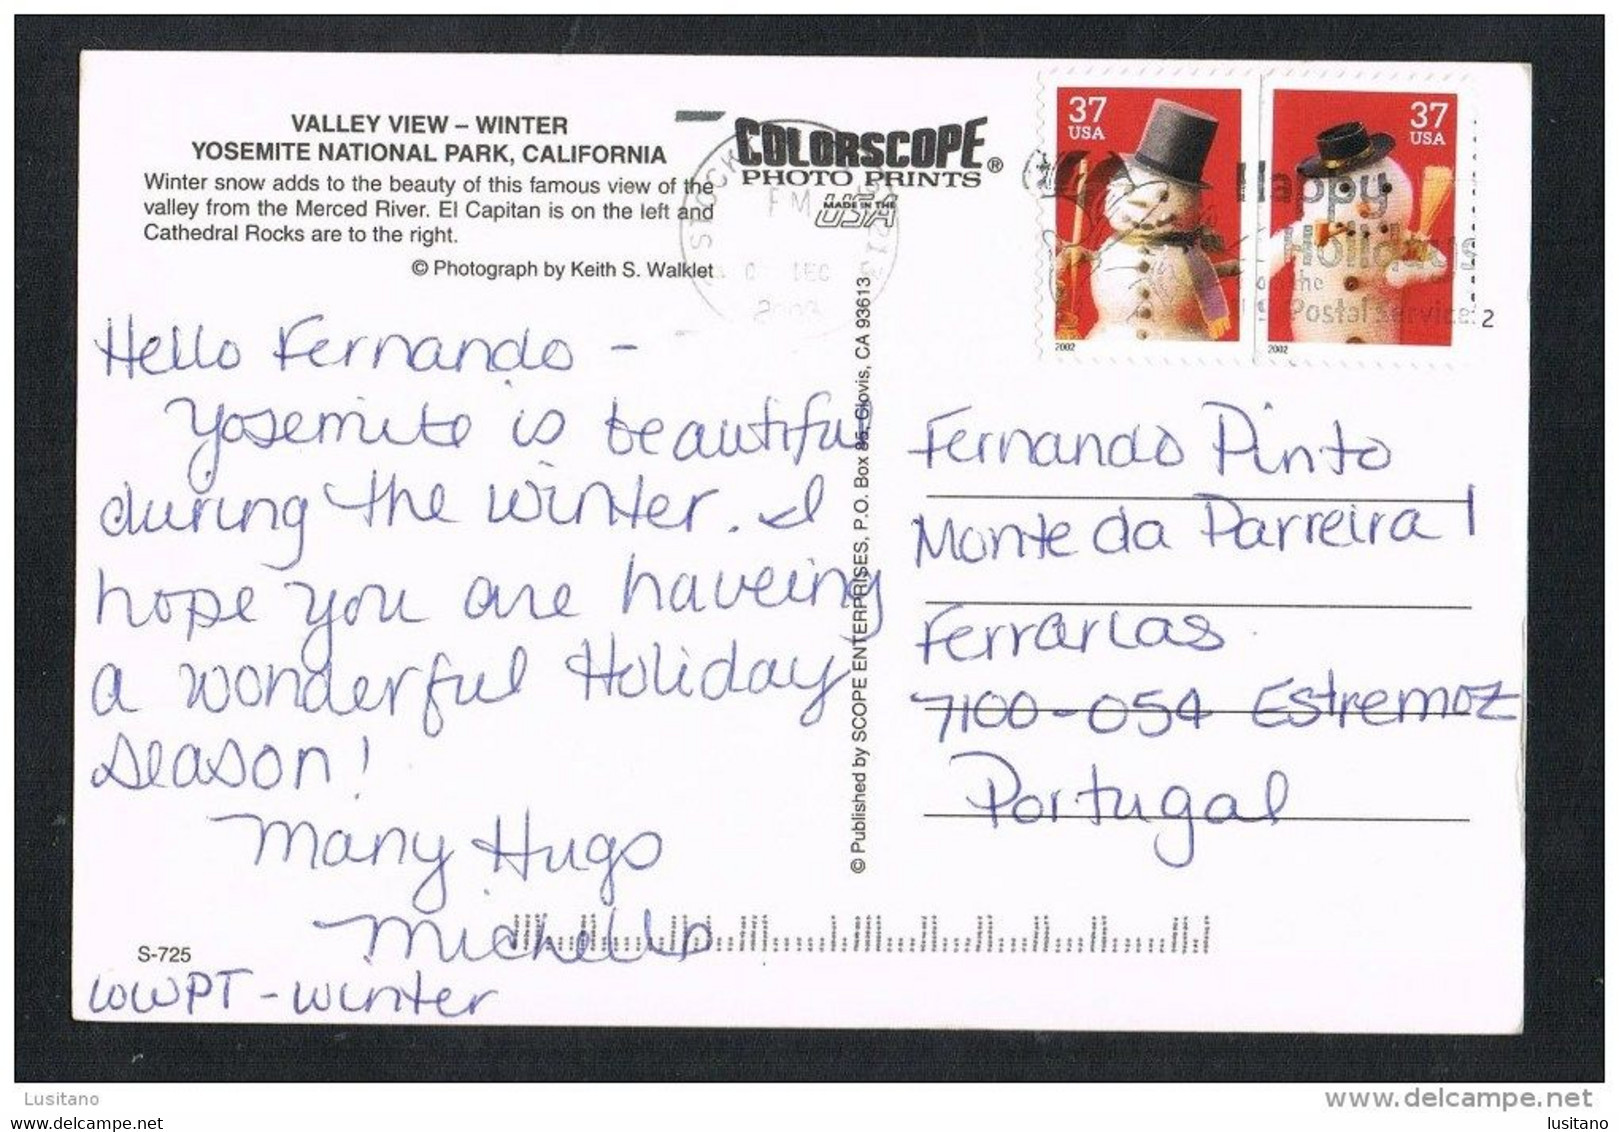 VALLEY VIEW – WINTER
YOSEMITE NATIONAL PARK, CALIFORNIA
Winter snow adds to the beauty of this famous view of the
valley from the Merced River. El Capitan is on the left and
Cathedral Rocks are to the right.
© Photograph by Keith S. Walklet
COLORSCOPE®
PHOTO PRINTS
MADE IN THE
USA
STOCK
PM
DEC
2003
37
USA
2002
37
USA
2002
Happy
Holidays
from the
U S Postal Service
2
Hello Fernando –
Yosemite is beautiful
during the winter. I
hope you are haveing
a wonderful Holiday
season!
Many Hugs
Michelle
S-725
WWPT – Winter
© Published by SCOPE ENTERPRISES, P.O. Box 85, Clovis, CA 93613
Fernando Pinto
Monte da Parreira 1
Ferrarias
7100-054 Estremoz
Portugal
Lusitano
www.delcampe.net
lusitano
lusitano
lusitano